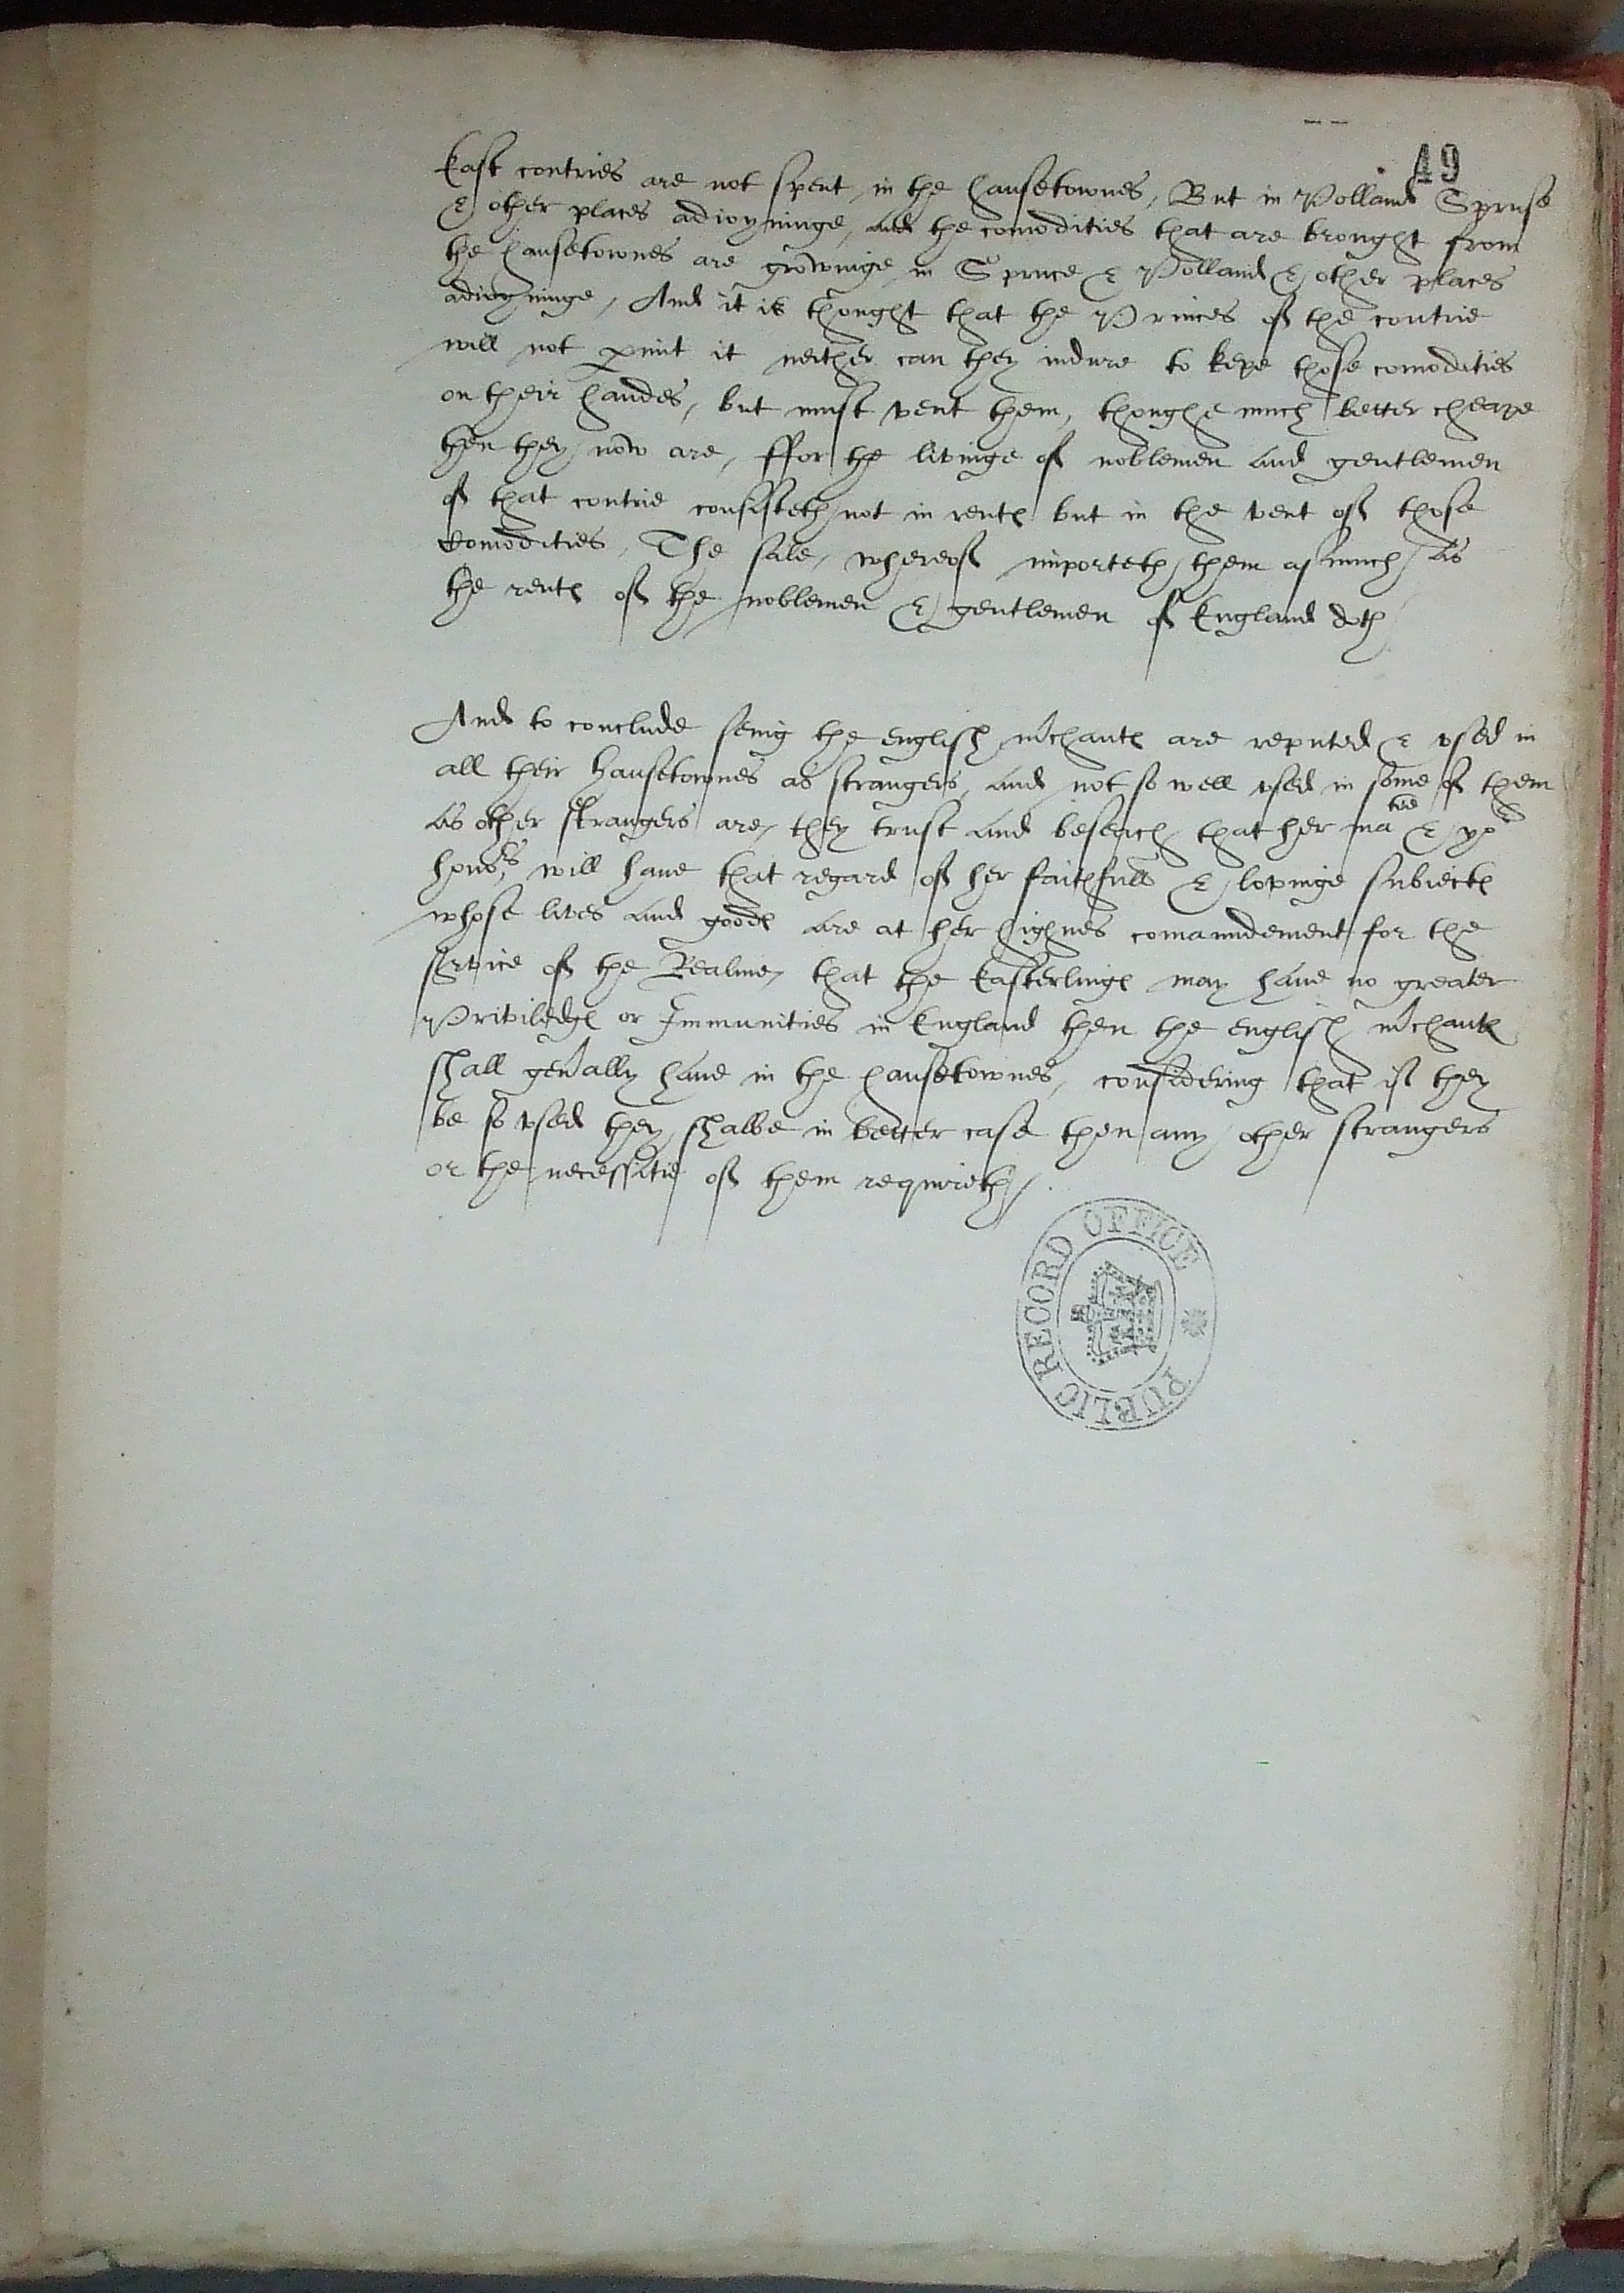 49
East contries are not spent in the hansetownes, But in Polland Spruse
& other places adioyninge, and the comodities that are brought from
the hansetownes are growinge in Spruce & Polland & other places
adioyninge, And it is thought that the Princes of the contrie
will not pmit it neither can they indure to kepe those comodities
on their handes, but must vent them, thoughe much better cheape
then they now are, ffor the livinge of noblemen and gentlemen
of that contrie consisteth not in rentes but in the vent of those
comodities, The sale, whereof importeth them asmuch as
the rentes of the noblemen & gentlemen of England doth
And to conclude seing the english mchantes are reputed & vsed in
all their hansetownes as strangers, and not so well vsed in some of them
as other strangers are, they trust and beseach that her matie & yor
honors, will haue that regard of her faithfull & lovinge subiectes
whose lives and goodes are at her highnes comaundement for the
service of the Realme, that the Easterlinges may haue no greater
Priviledges or Immunities in England then the english mchantes
shall genally haue in the hansetownes, considering that if they
be so vsed they shalbe in better case then any other strangers
or the necessitie of them requireth
PUBLIC RECORD OFFICE